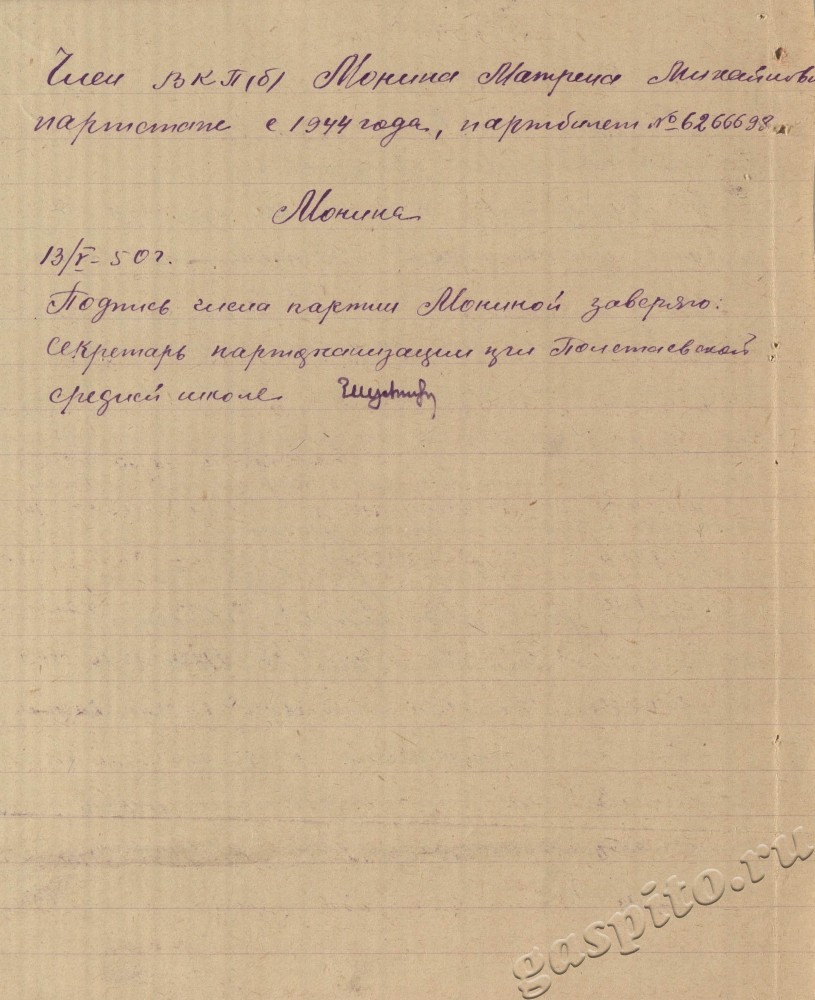 Член ВКП(б) Монина Матрена Михайлов
партстаж с 1944 года, партбилет № 6266698
Монина
13/V-50 г.
Подпись члена партии Мониной заверяю:
секретарь парторганизации при Полетаевской
средней школе
gaspito.ru